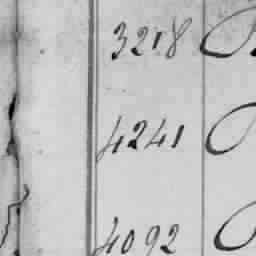 3218
4241
4092